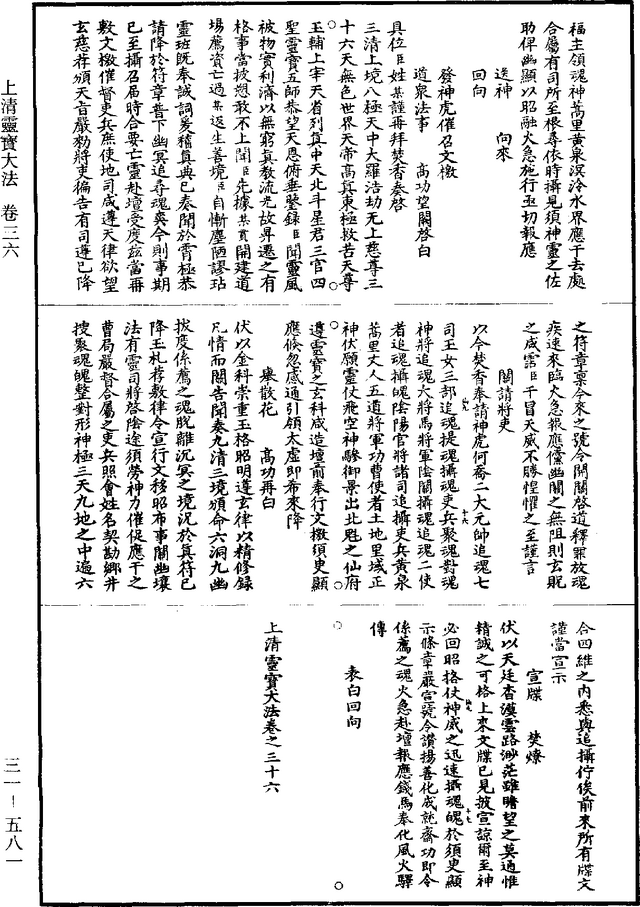 上清靈寶大法 卷三六
三一–五八一
福主領魂神蒿里黃泉溟泠水界應干去處
合屬有司所至根尋依時攝見須神靈之佐
助俾幽顯以昭融火急施行至切報應
送神 向來
回向
發神虎催召文檄
道衆法事 高功望闕啓白
具位臣姓某謹再拜焚香奏啓
三清上境八極天中大羅浩劫无上慈尊三
十六天無色世界天帝高真東極救苦天尊
玉輔上宰天省列真中天北斗星君三官四
聖靈寶五師恭望天恩俯垂鑒録臣聞靈風
被物實利濟以無窮真教流光故昇遷之有
格事當披愬敢不上聞臣先據某頁開建道
場薦資亡過某返生善境臣自慚塵陋謬玷
靈班既奉誠詞爰稽真典已奏聞於霄極恭
請降於符章普下幽冥追尋魂爽今則事期
已至攝召届時合要亡靈赴壇受度兹當再
數文檄催督吏兵庶使地司咸遵天律欲望
玄慈荐頒天旨嚴勑將吏徧告有司遵已降
之符章稟今來之號令開闢啓道釋罪放魂
疾速來臨火急報應儻幽關之無阻則玄貺
之咸霑臣干冒天威不勝惶懼之至謹言
關請將吏
以今焚香奉請神虎何喬二大元帥追魂七
司玉女三部追魂提魂攝魂吏兵聚魂對魂
神將追魂大將馬將軍陰關攝魂追魂二使
者追魂攝魄陰陽官將諸司追攝吏兵黃泉
蒿里丈人五道將軍功曹使者土地里域正
神伏願靈仗飛空神驂御景出北魁之仙府
遵靈寶之玄科咸造壇前奉行文檄須臾顯
應倏忽感通引領太虛即希來降
舉散花 高功再白
伏以金科崇重玉格昭明遵玄律以精修録
凡情而關告聞奏九清三境頒命六洞九幽
拔度係薦之魂脫離沉冥之境況於真符已
降玉札荐敷律令宣行文移昭布事關幽壤
法有靈司將啓陰途須勞神力催促應干之
曹局嚴督合屬之吏兵照會姓名契勘鄉井
搜聚魂魄整對形神極三天九地之中遍六
合四維之内悉與追攝佇俟前來所有牒文
謹當宣示
宣牒 焚燎
伏以天廷杳漠雲路渺茫雖瞻望之莫通惟
精誠之可格上來文牒已見披宣諒爾至神
必回昭格仗神威之迅速攝魂魄於須臾顯
示條章嚴宫號令讚揚善化成就齋功即令
係薦之魂火急赴壇報應錢馬奉化風火驛
傳
表白回向
上清靈寶大法卷之三十六